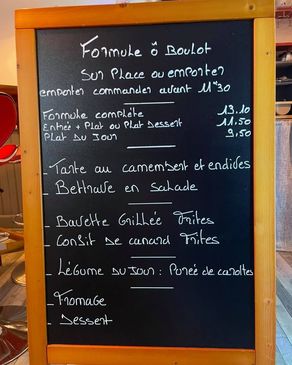 Formule ô Boulot
Sur Place ou emporter
emporter commander avant 11h30
Formule complète 13.10
Entrée + Plat ou Plat Dessert 11.50
Plat du Jour 9,50
_ Tarte au camembert et endives
_ Bettrave en salade
_ Bavette Grillée Frites
_ Confit de canard Frites
_ Légume du Jour : Purée de carottes
_ Fromage
_ Dessert